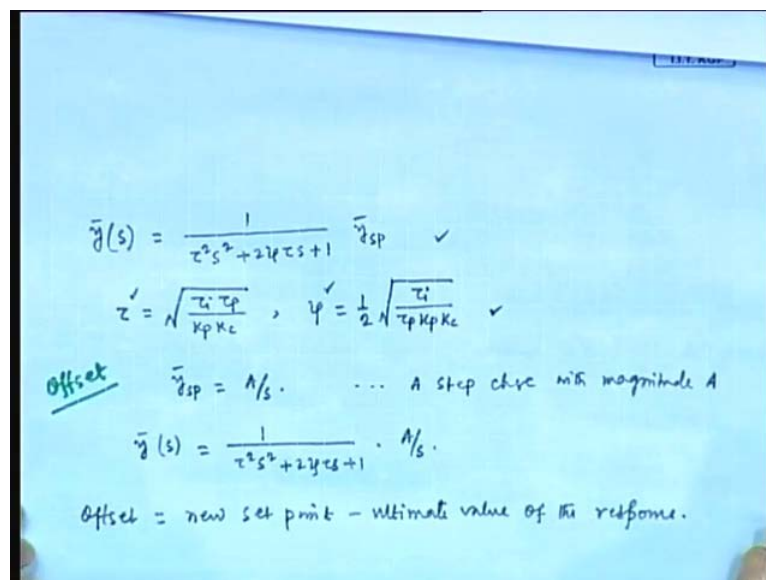 I.I.T. KGP
ȳ(s) = 1 / (τ²s² + 2ψτs + 1) ȳsp ✓
τ = √(τi τp / Kp Kc) , ψ = 1/2 √(τi / τp Kp Kc) ✓
Offset ȳsp = A/s. ... A step chge with magnitude A
ȳ(s) = 1 / (τ²s² + 2ψτs + 1) . A/s.
Offset = new set point – ultimate value of the response.